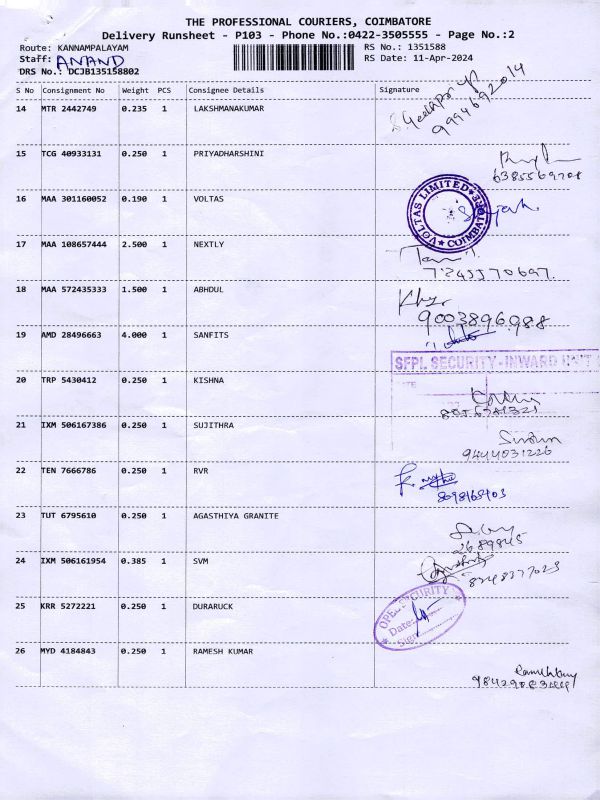 THE PROFESSIONAL COURIERS, COIMBATORE
Delivery Runsheet - P103 - Phone No.:0422-3505555 - Page No.:2
Route: KANNAMPALAYAM RS No.: 1351588
Staff: ANAND RS Date: 11-Apr-2024
DRS No.: DCJB135158802
S No Consignment No Weight PCS Consignee Details Signature
14 MTR 2442749 0.235 1 LAKSHMANAKUMAR
9994692014
15 TCG 40933131 0.250 1 PRIYADHARSHINI
16 MAA 301160052 0.190 1 VOLTAS
VOLTAS LIMITED ★ COIMBATORE ★
17 MAA 108657444 2.500 1 NEXTLY
18 MAA 572435333 1.500 1 ABHDUL
9003896988
19 AMD 28496663 4.000 1 SANFITS
SFPL SECURITY - INWARD UNIT
DATE
20 TRP 5430412 0.250 1 KISHNA
21 IXM 506167386 0.250 1 SUJITHRA
9444031226
22 TEN 7666786 0.250 1 RVR
23 TUT 6795610 0.250 1 AGASTHIYA GRANITE
2689845
24 IXM 506161954 0.385 1 SVM
25 KRR 5272221 0.250 1 DURARUCK
SECURITY
Date:
Sign
26 MYD 4184843 0.250 1 RAMESH KUMAR